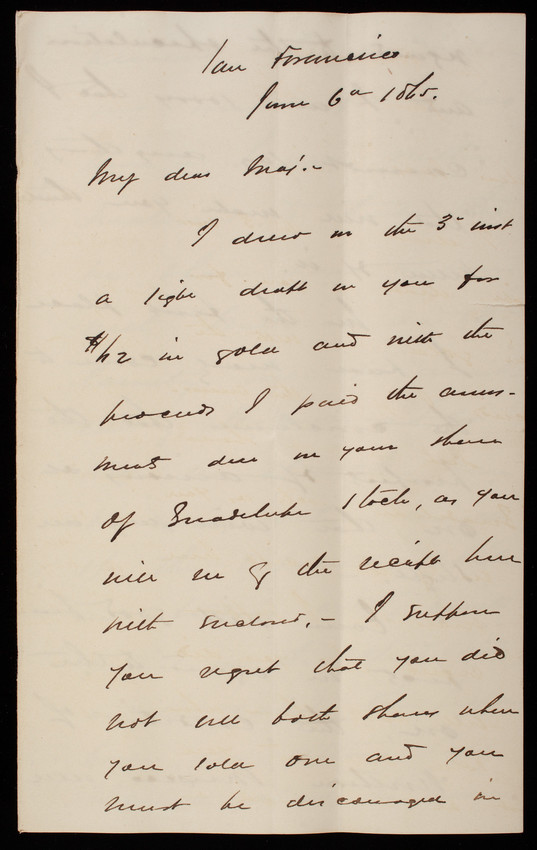 San Francisco
June 6th 1865.
My dear Maj.-
I drew on the 3d inst
a sight draft on you for
$112 in gold and with the
proceeds I paid the assess-
ment due on your share
of Guadalupe Stock, as you
will see by the receipt here
with enclosed. - I suppose
you regret that you did
not sell both shares when
you sold one and you
must be discouraged in